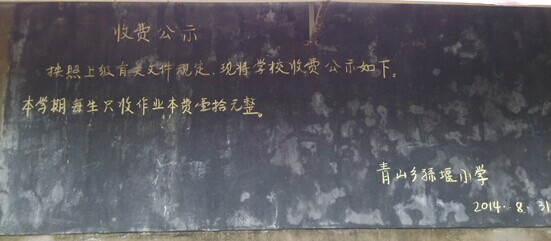 收费公示
按照上级有关文件规定，现将学校收费公示如下。
本学期每生只收作业本费壹拾元整。
青山乡猕堰小学
2014.8.31